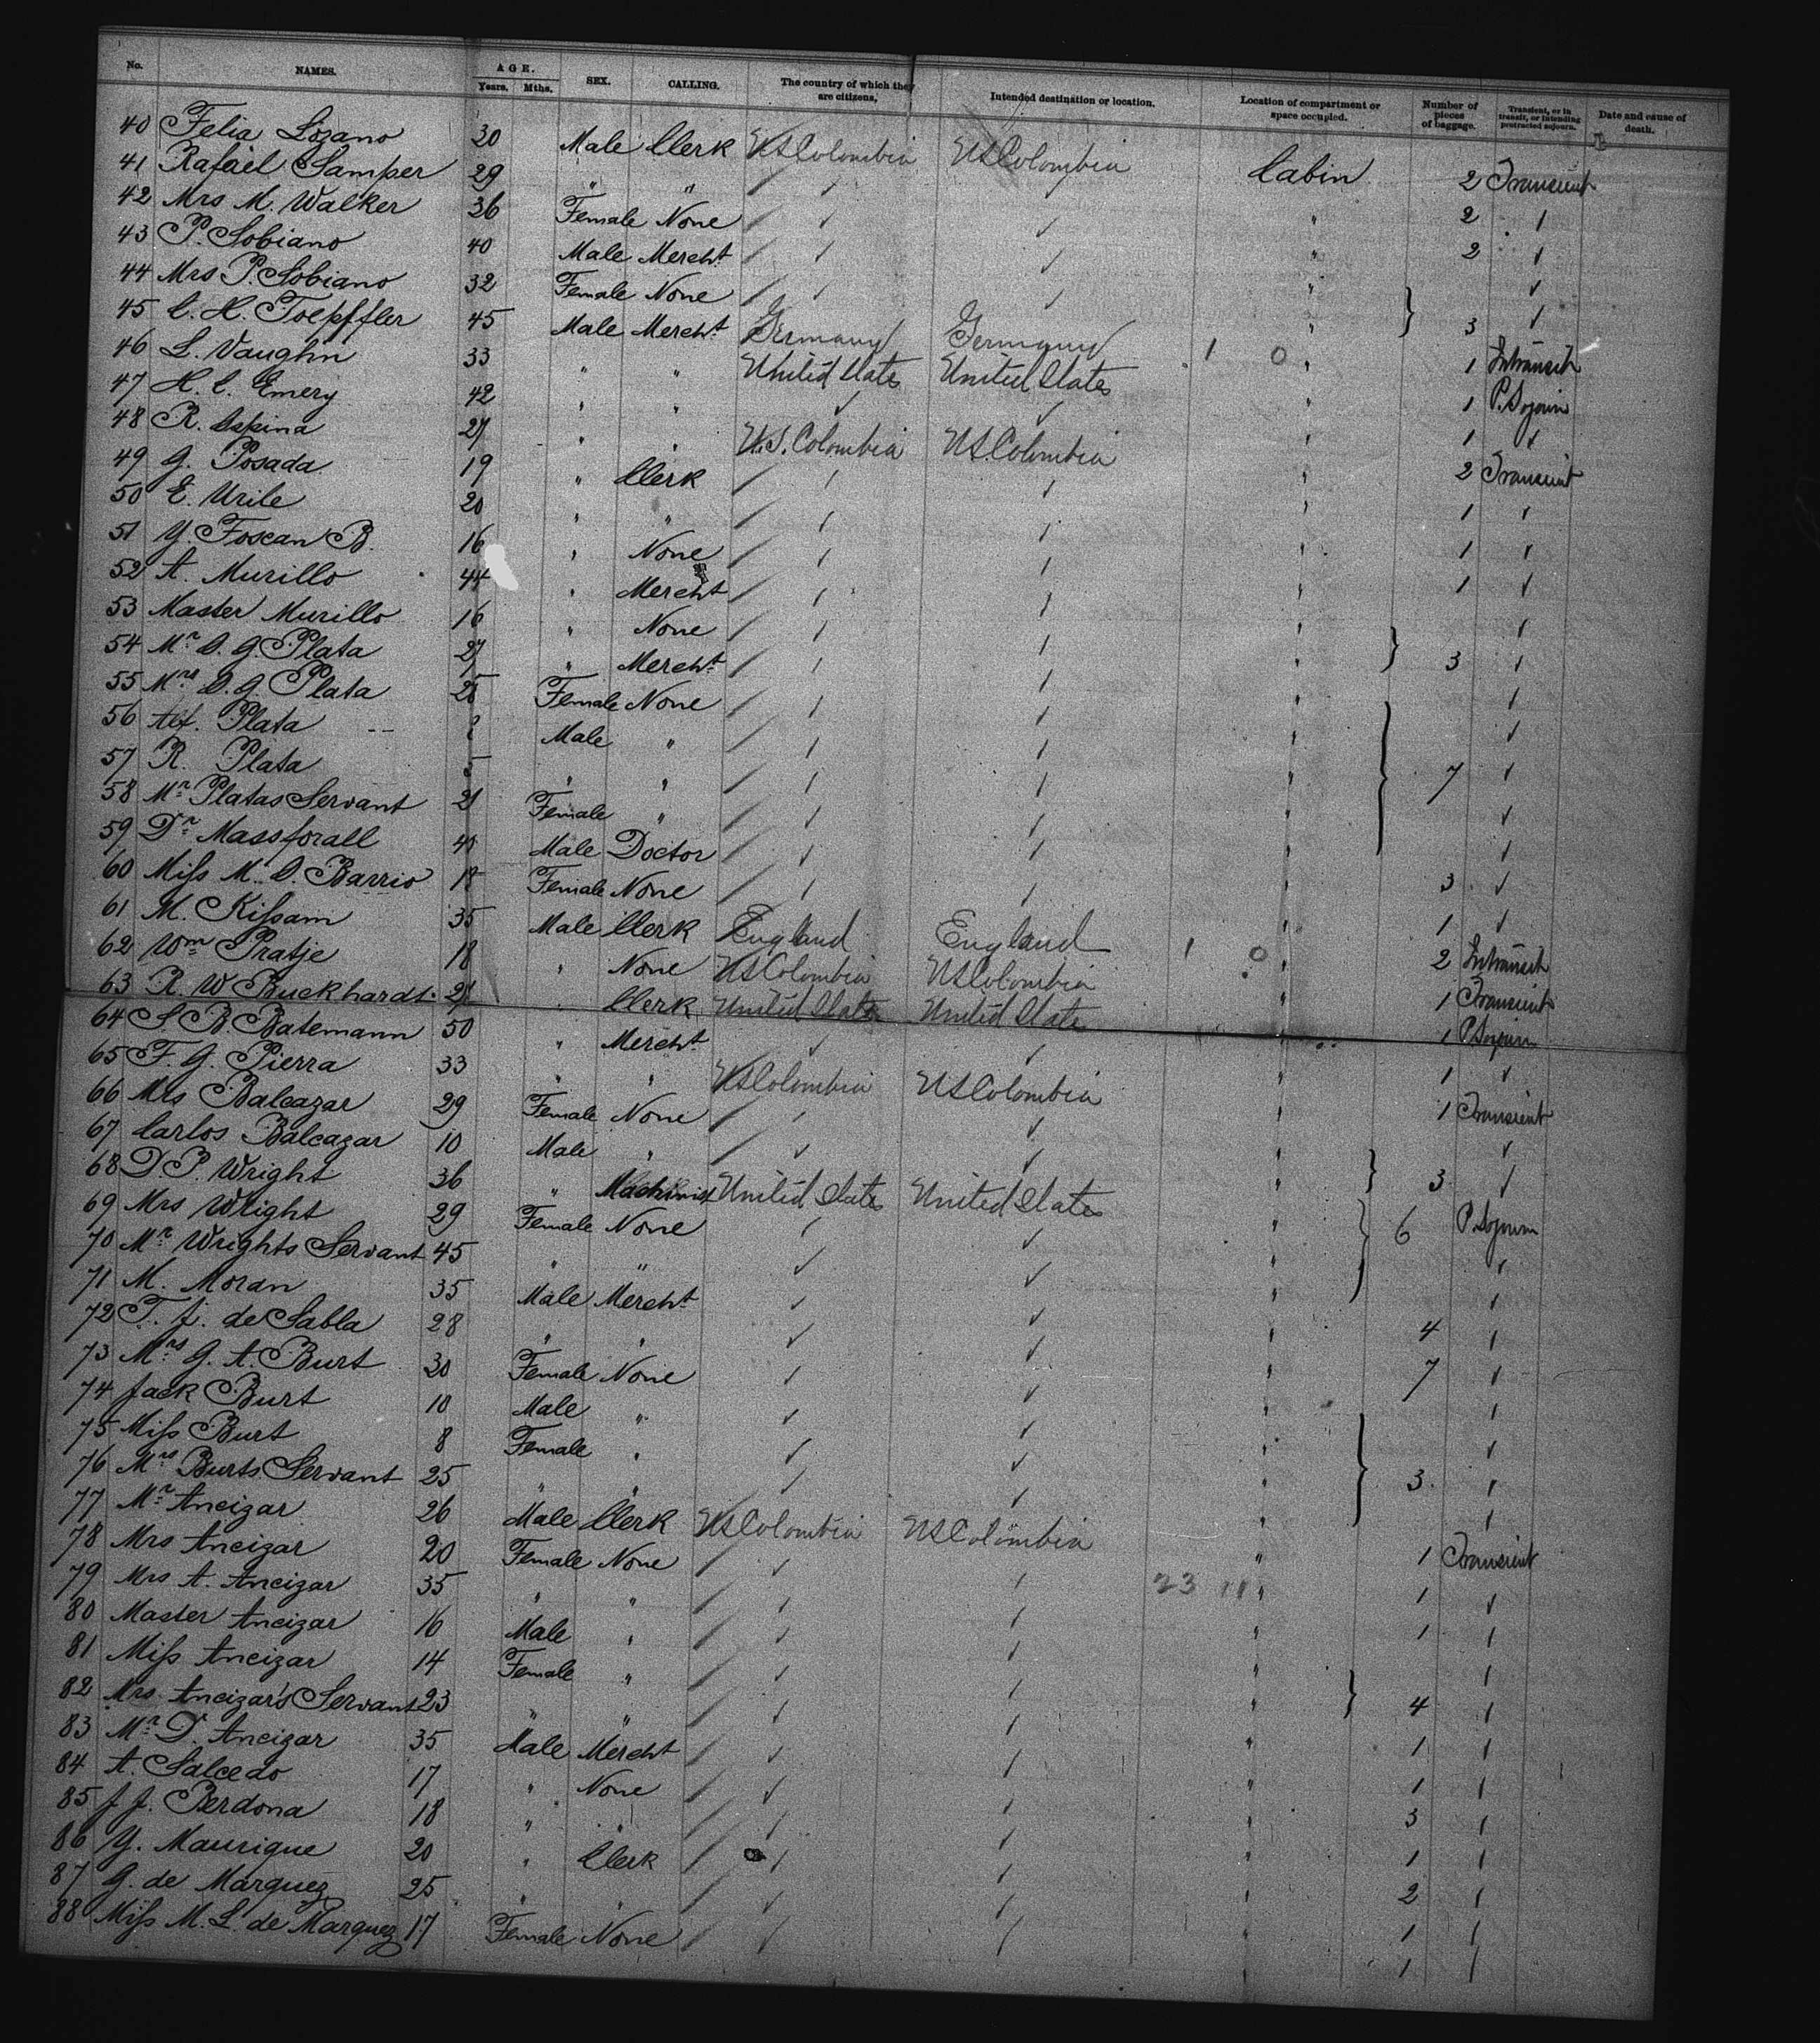 No. NAMES. AGE. Years. Mths. SEX. CALLING. The country of which they are citizens, Intended destination or location. Location of compartment or space occupied. Number of pieces of baggage. Transient, or in transit, or intending protracted sojourn. Date and cause of death.
40 Felia Lozano 30 Male Clerk US Colombia US Colombia Cabin 2 Transient
41 Rafael Samper 29 " " / / / " 2 /
42 Mrs M. Walker 36 Female None / / ✓ " 2 ✓
43 P. Sobiano 40 Male Mercht / / ✓ " ✓
44 Mrs P. Sobiano 32 Female None / / ✓ " } 3 ✓
45 C. H. Toepffler 45 Male Mercht Germany Germany 1 0 " 1 Intransit
46 L. Vaughn 33 " " United States United States " 1 P. Sojourn
47 H. C. Emery 42 " " ✓ ✓ " 1 ✓
48 R. Espina 27 " " U.S. Colombia US. Colombia " 2 Transient
49 G. Posada 19 " Clerk / / ✓ " 1 "
50 E. Urile 20 " " / / / " 1 ✓
51 Y. Foscan B. 16 " None / / / " 1 ✓
52 A. Murillo 44 " Mercht / / / " /
53 Master Murillo 16 " None / / / " } 3 /
54 Mr D. G. Plata 27 " Mercht / / / " /
55 Mrs D. G. Plata 25 Female None / / / " ✓
56 Alf. Plata Male " / / / " 7 ✓
57 R. Plata 5 " " / / / " ✓
58 Mr Platas Servant 21 Female " / / / " /
59 Dr Massforall Male Doctor / ✓ / " 3 ✓
60 Miss M. D. Barrio Female None / / / " 1 ✓
61 M. Kissam 35 Male Clerk England England 1 0 " 2 Intransit
62 Wm Pratje 18 " None US Colombia US Colombia " 1 Transient
63 R. W Buckhardt 27 " Clerk United States United States " 1 P Sojourn
64 S B Batemann 50 " Mercht ✓ ✓ " 1 ✓
65 F. G. Pierra 33 " " US Colombia US Colombia " 1 Transient
66 Mrs Balcazar 29 Female None / / ✓ " ✓
67 Carlos Balcazar 10 Male " / ✓ ✓ " } 3 ✓
68 D. P. Wright 36 " Machinist United States United States " 6 P. Sojourn
69 Mrs Wright 29 Female None / ✓ " ✓
70 Mr Wrights Servant 45 " " ✓ ✓ " /
71 M. Moran 35 Male Mercht ✓ ✓ " 4 /
72 T. J. de Sabla 28 " " ✓ ✓ " 7 ✓
73 Mrs G. A. Burt 30 Female None / ✓ " /
74 Jack Burt 10 Male " ✓ ✓ " ✓
75 Miss Burt 8 Female " ✓ ✓ " 3 ✓
76 Mrs Burts Servant 25 " " / / " /
77 Mr Ancizar 26 Male Clerk US Colombia US Colombia " 1 Transient
78 Mrs Ancizar 20 Female None / ✓ / 23 11 " 1 ✓
79 Mrs A. Ancizar 35 " " / / / " 1 /
80 Master Ancizar 16 Male " / ✓ / " /
81 Miss Ancizar 14 Female " / ✓ / " } 4 /
82 Mrs. Ancizar's Servant 23 " " / ✓ / " 1 /
83 Mr D. Ancizar 35 Male Mercht / ✓ / " 1 /
84 A. Salcedo 17 " None / ✓ / " 3 /
85 J J. Perdona 18 " " / / / " 1 /
86 Y. Maurique 20 " Clerk / / / " 2 /
87 G. de Marquez 25 " " / ✓ / " 1 /
88 Miss M. L. de Marquez 17 Female None / / / " 1 /